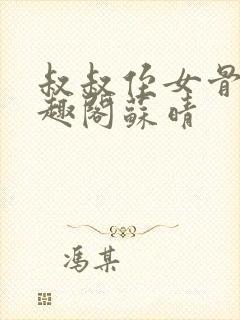 叔叔侄女骨
趣阁苏晴
冯某